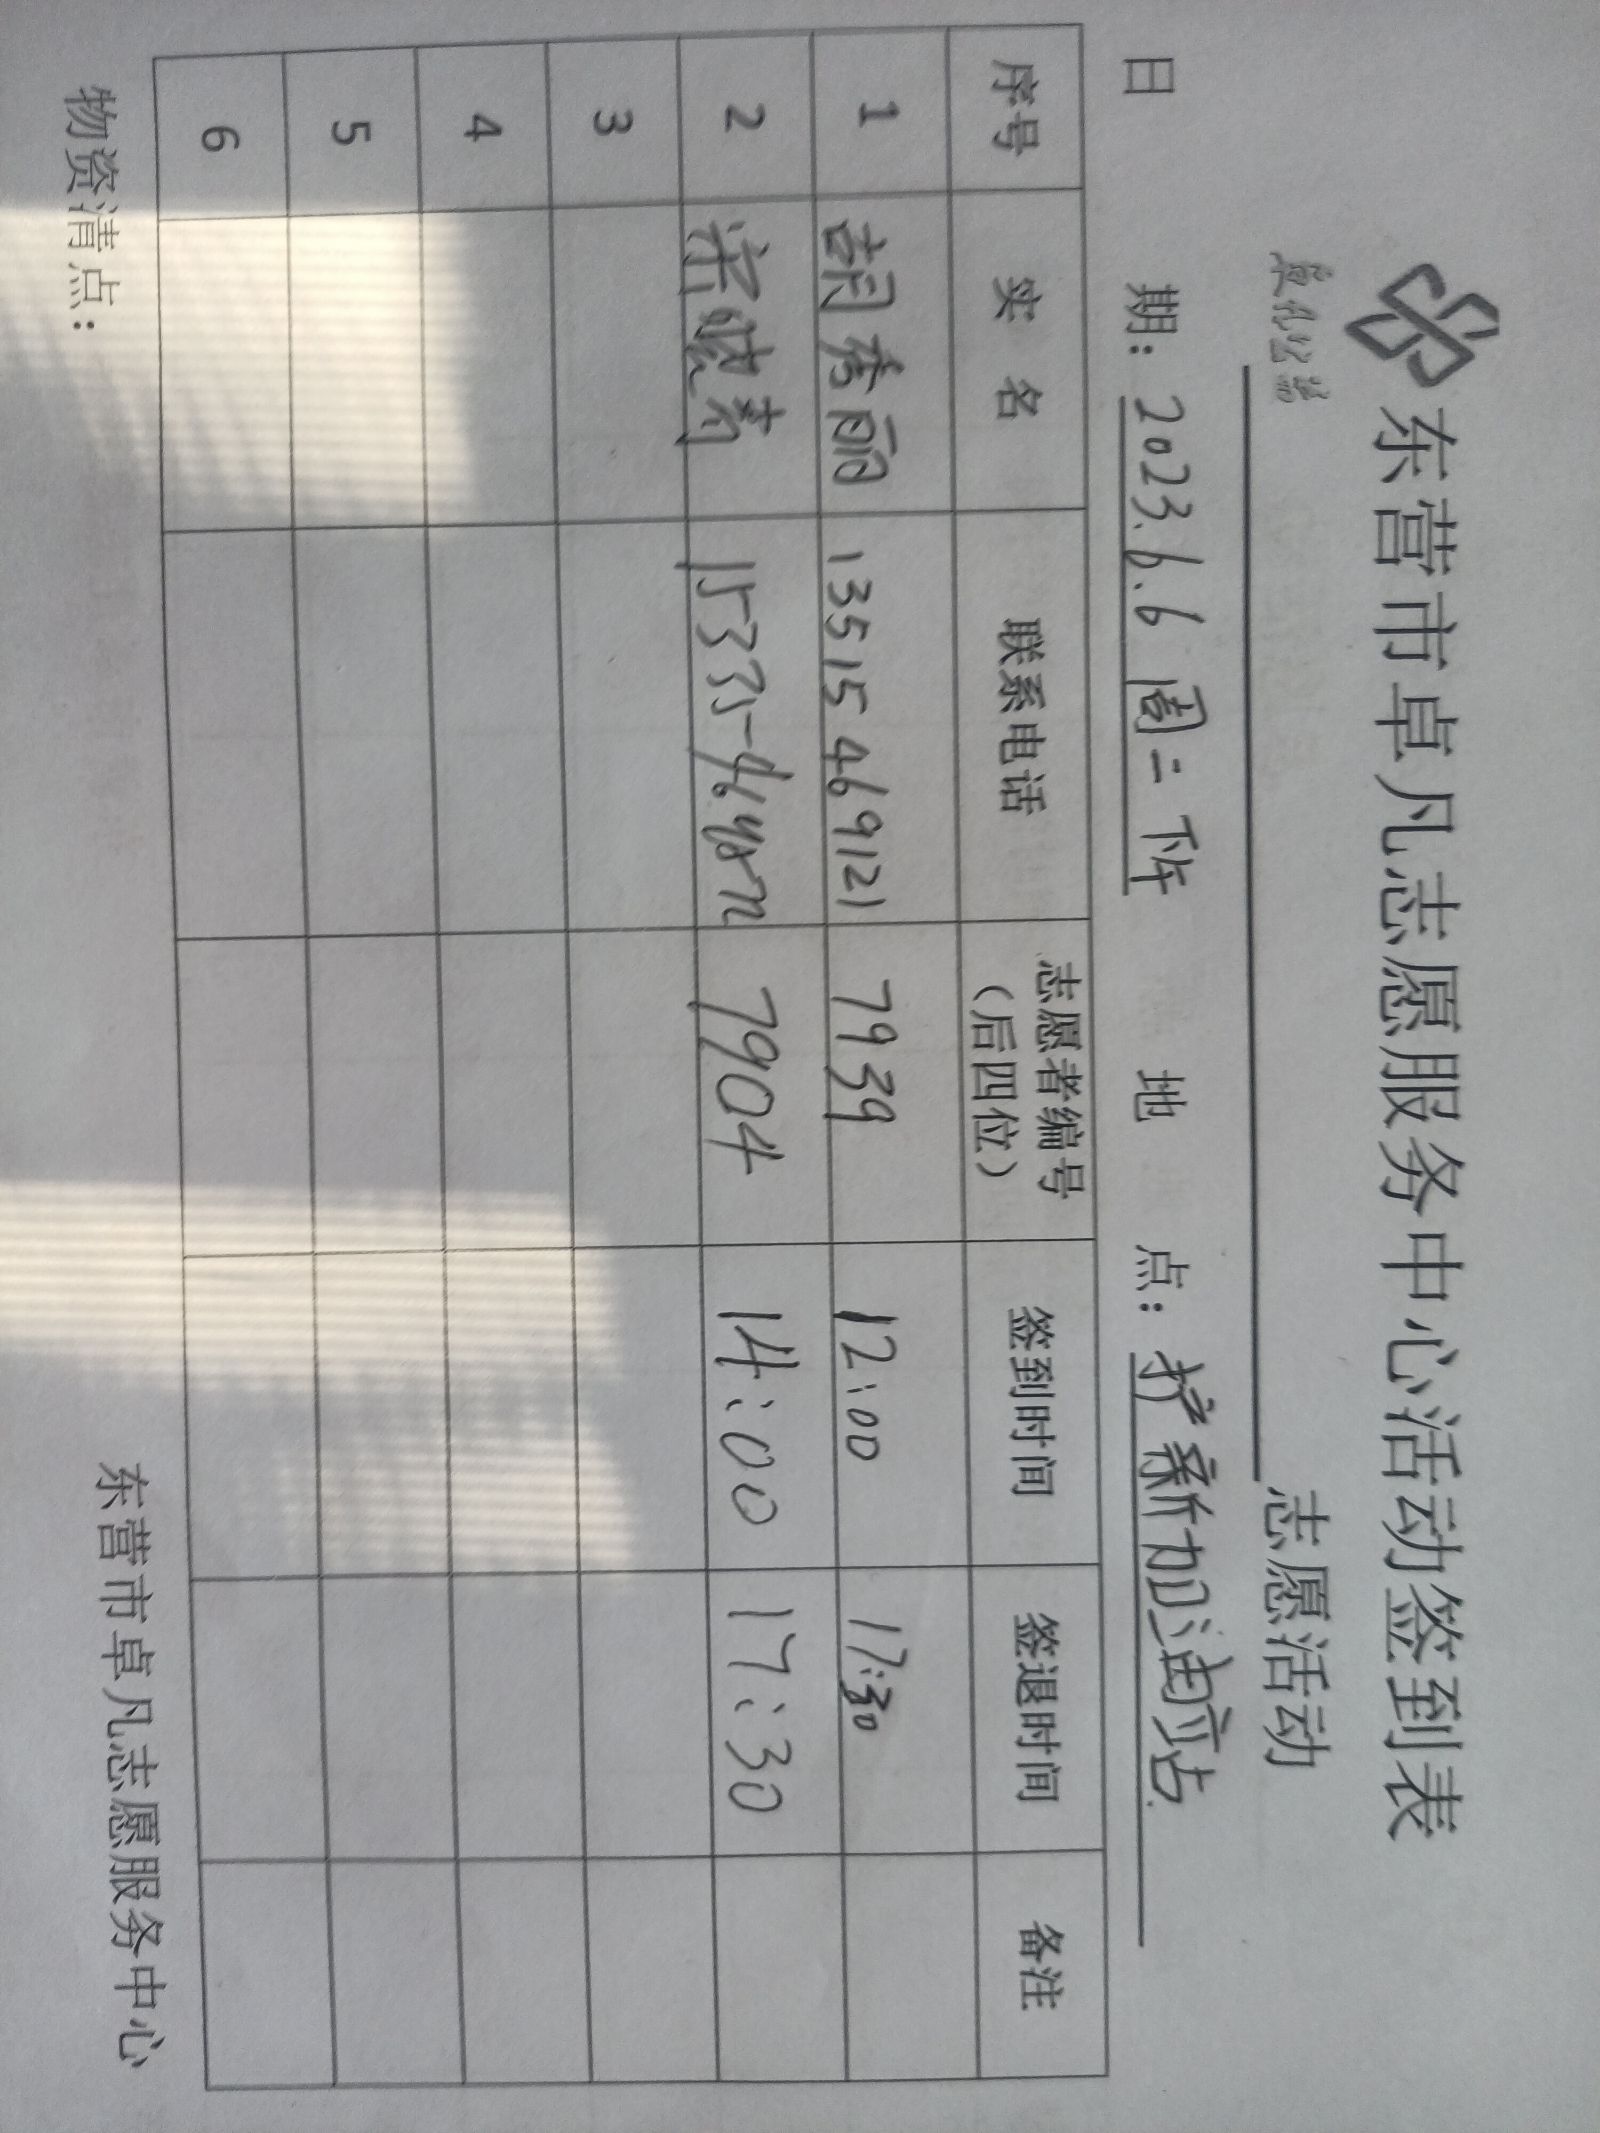 东营市卓凡志愿服务中心活动签到表
卓凡公益
志愿活动
日 期: 2023.6.6 周二 下午 地 点: 护 新加油站
序号 实 名 联系电话 志愿者编号(后四位) 签到时间 签退时间 备注
1 胡秀丽 13515469121 7939 12:00 17:30
2 7904 14:00 17:30
3
4
5
6
物资清点:
东营市卓凡志愿服务中心